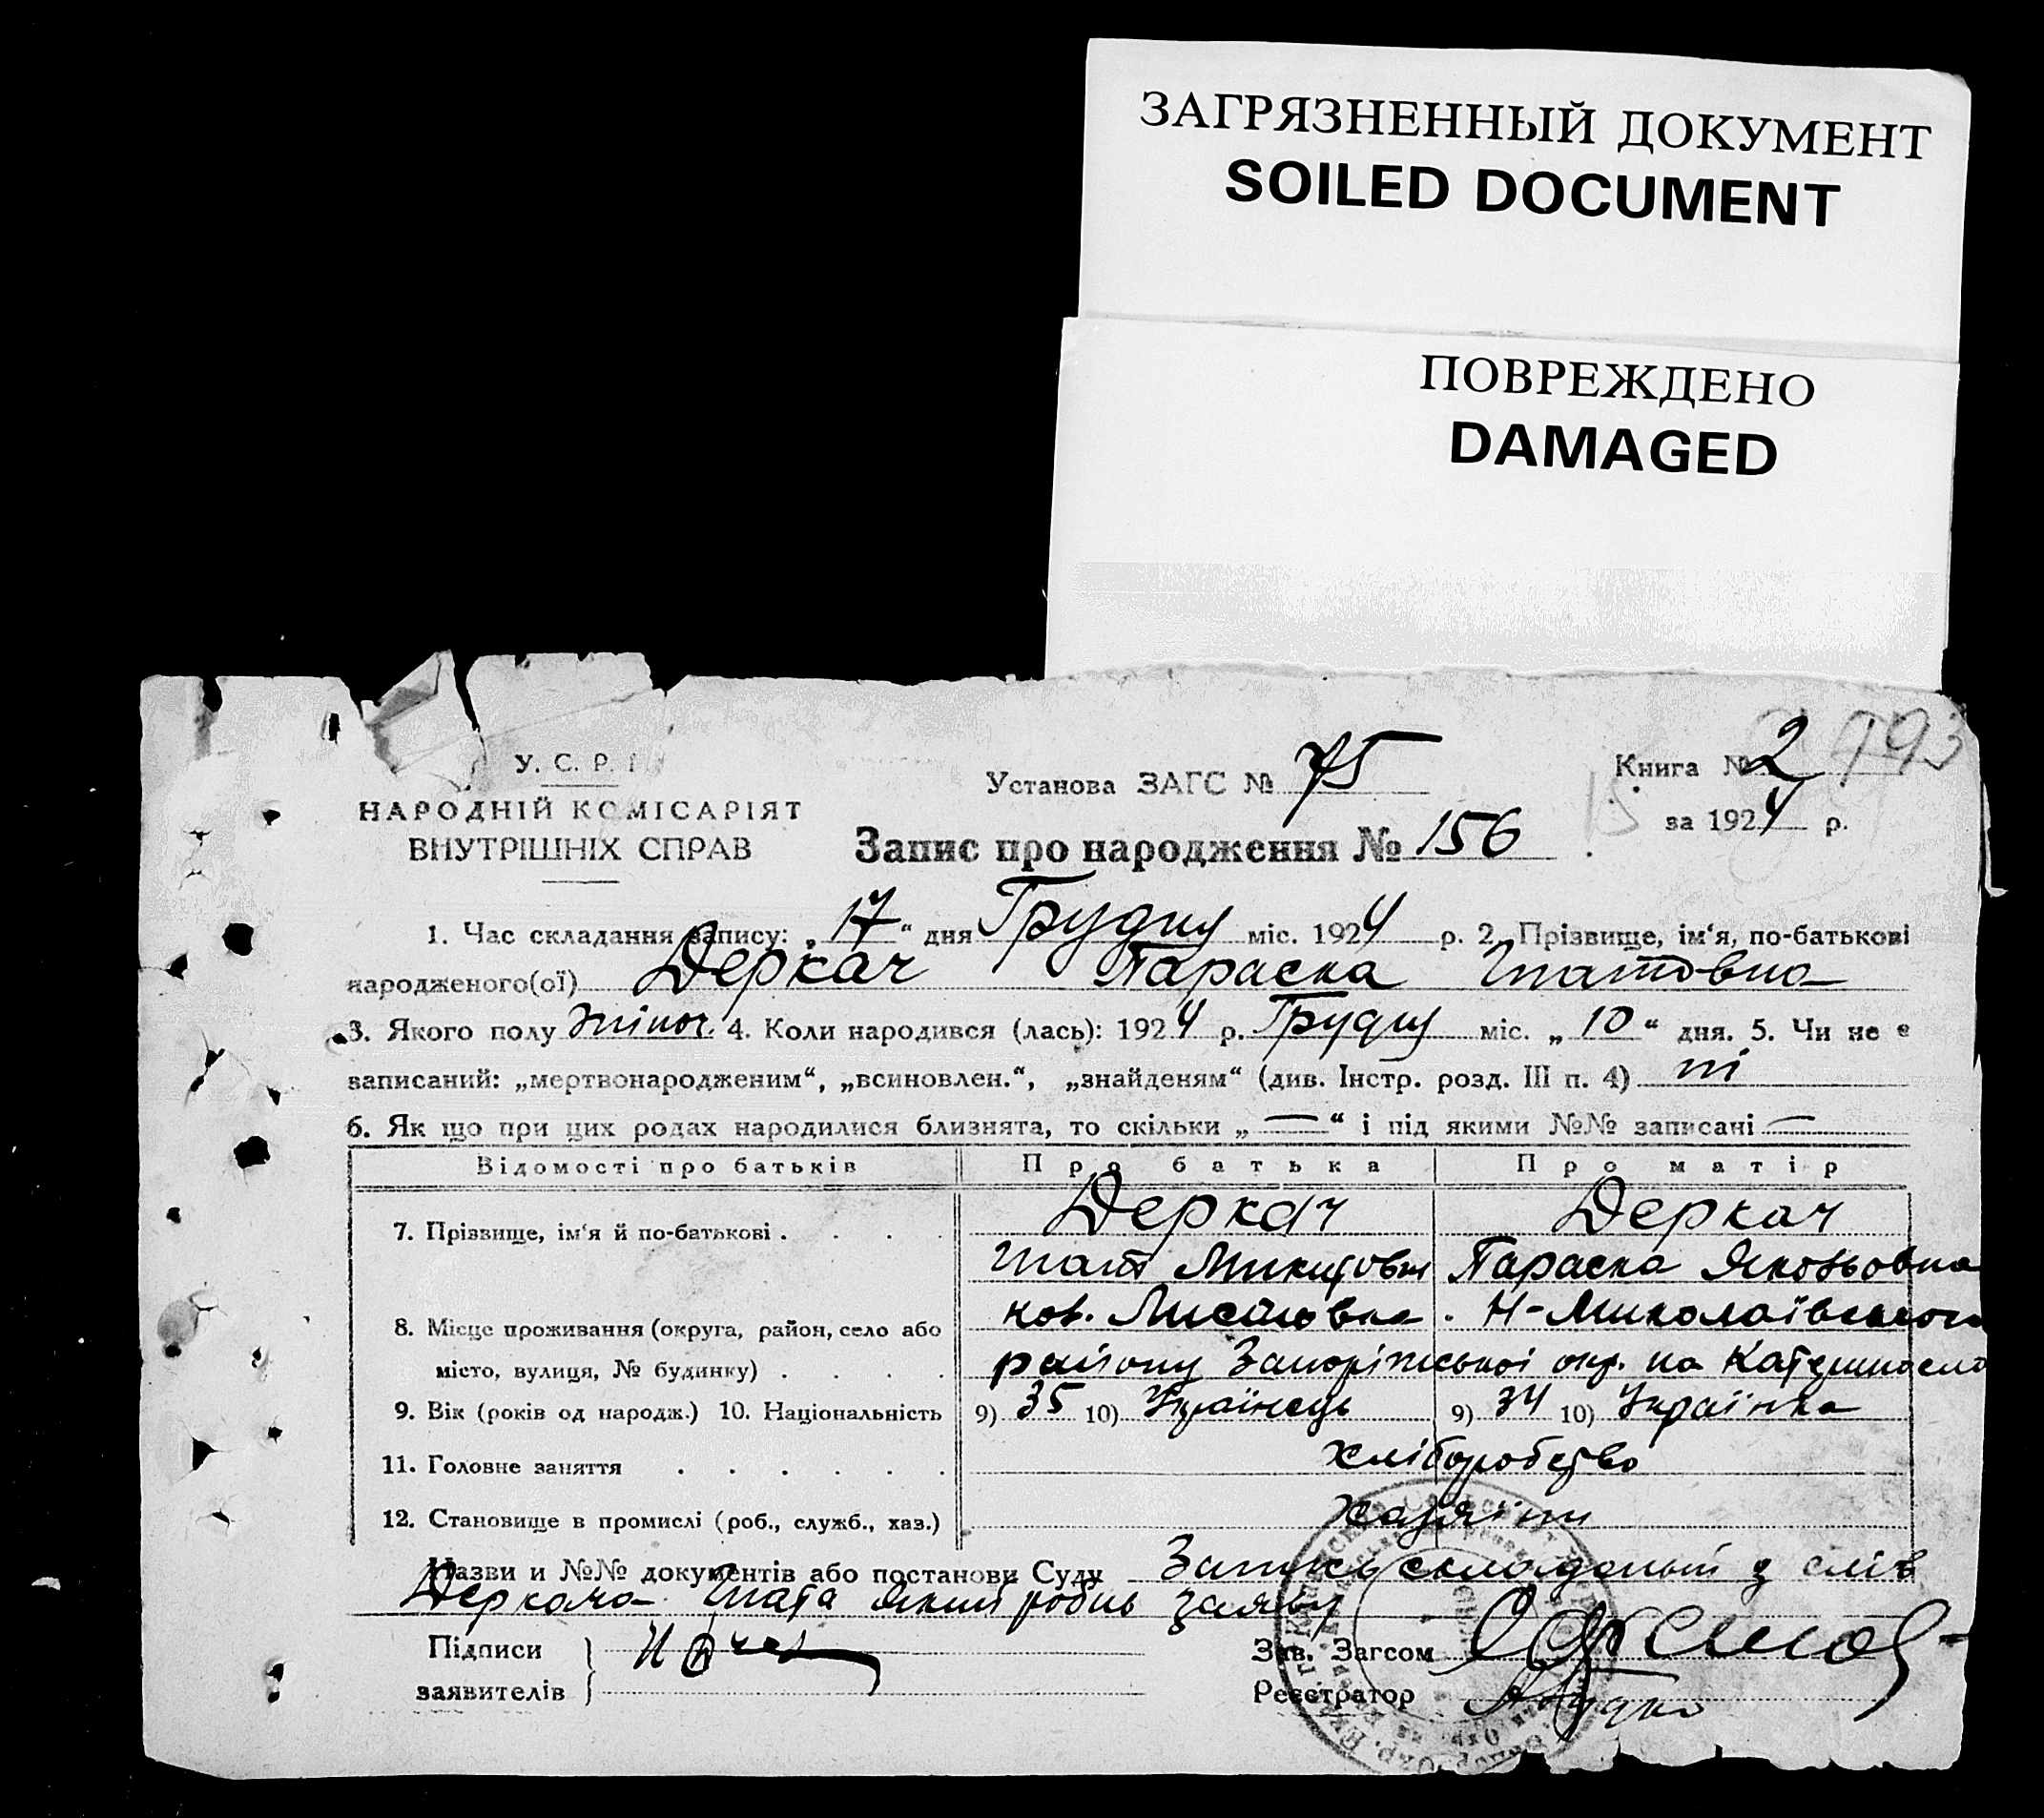 ЗАГРЯЗНЕННЫЙ ДОКУМЕНТ
SOILED DOCUMENT
ПОВРЕЖДЕНО
DAMAGED
У. С. Р. Р.
НАРОДНІЙ КОМІСАРІЯТ
ВНУТРІШНІХ СПРАВ
Установа ЗАГС № 75
Книга № 2
193
за 1924 р.
Запис про народження № 156
1. Час складання запису: „17“ дня Грудня міс. 1924 р. 2. Прізвище, ім‘я, по-батькові
народженого(ої) Деркач Параска Гнатовна
3. Якого полу жіноч. 4. Коли народився (лась): 1924 р. Грудня міс. „10“ дня. 5. Чи не є
записаний: „мертвонародженим“, „всиновлен.“, „знайденям“ (див. Інстр. розд. III п. 4) ні
6. Як що при цих родах народилися близнята, то скільки „—“ і під якими №№ записані —
Відомості про батьків Про батька Про матір
7. Прізвище, ім‘я й по-батькові Деркач Деркач
Гнат Микитович Параска Яковьовна
8. Місце проживання (округа, район, село або Н-Миколаївського
місто, вулиця, № будинку) району Запоріжської окр. на
9. Вік (років од народж.) 10. Національність 9) 35 10) Українець 9) 34 10) Українка
11. Головне заняття хліборобство
12. Становище в промислі (роб., служб., хаз.) хазяїни
Назви и №№ документів або постанови Суду Запись складаный з слів
Деркача Гната який робив заяву
Підписи
заявителів
Зав. Загсом
Реєстратор